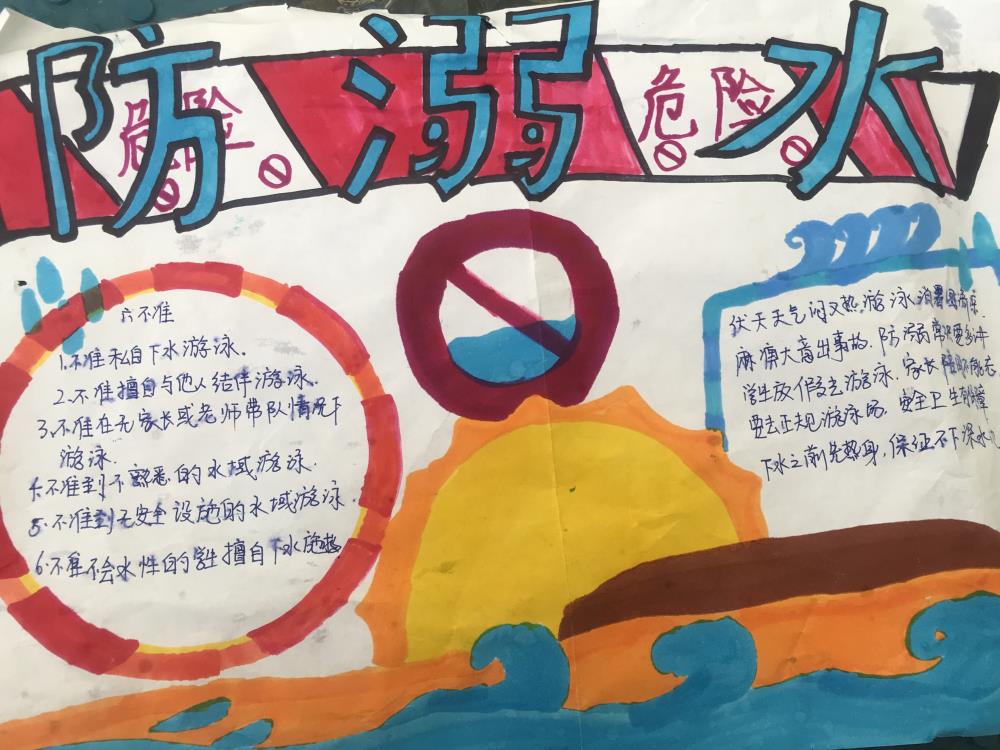 防溺水
危险
危险
六不准
1.不准私自下水游泳.
2.不准擅自与他人结伴游泳.
3.不准在无家长或老师带队情况下
游泳.
4.不准到不熟悉的水域游泳.
5.不准到无安全设施的水域游泳.
6.不准不会水性的学生擅自下水施救
伏天天气闷又热,游泳消暑
麻痹大意出事故.防溺常识要
学生放假去游泳.家长陪同
要去正规游泳的.安全卫生有保障
下水之前先热身,保证不下深水